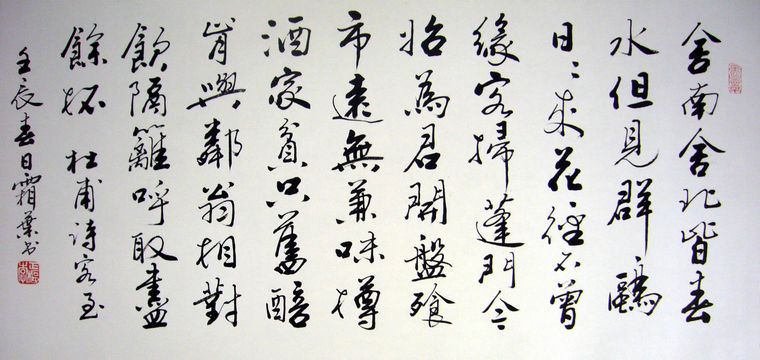 舍南舍北皆春
水但見群鷗
日〻来花徑不曾
緣客掃蓬門今
始為君開盤飧
市遠無兼味樽
酒家貧只舊醅
肯與鄰翁相對
飲隔籬呼取盡
餘杯 杜甫詩客至
壬辰春日霜葉书